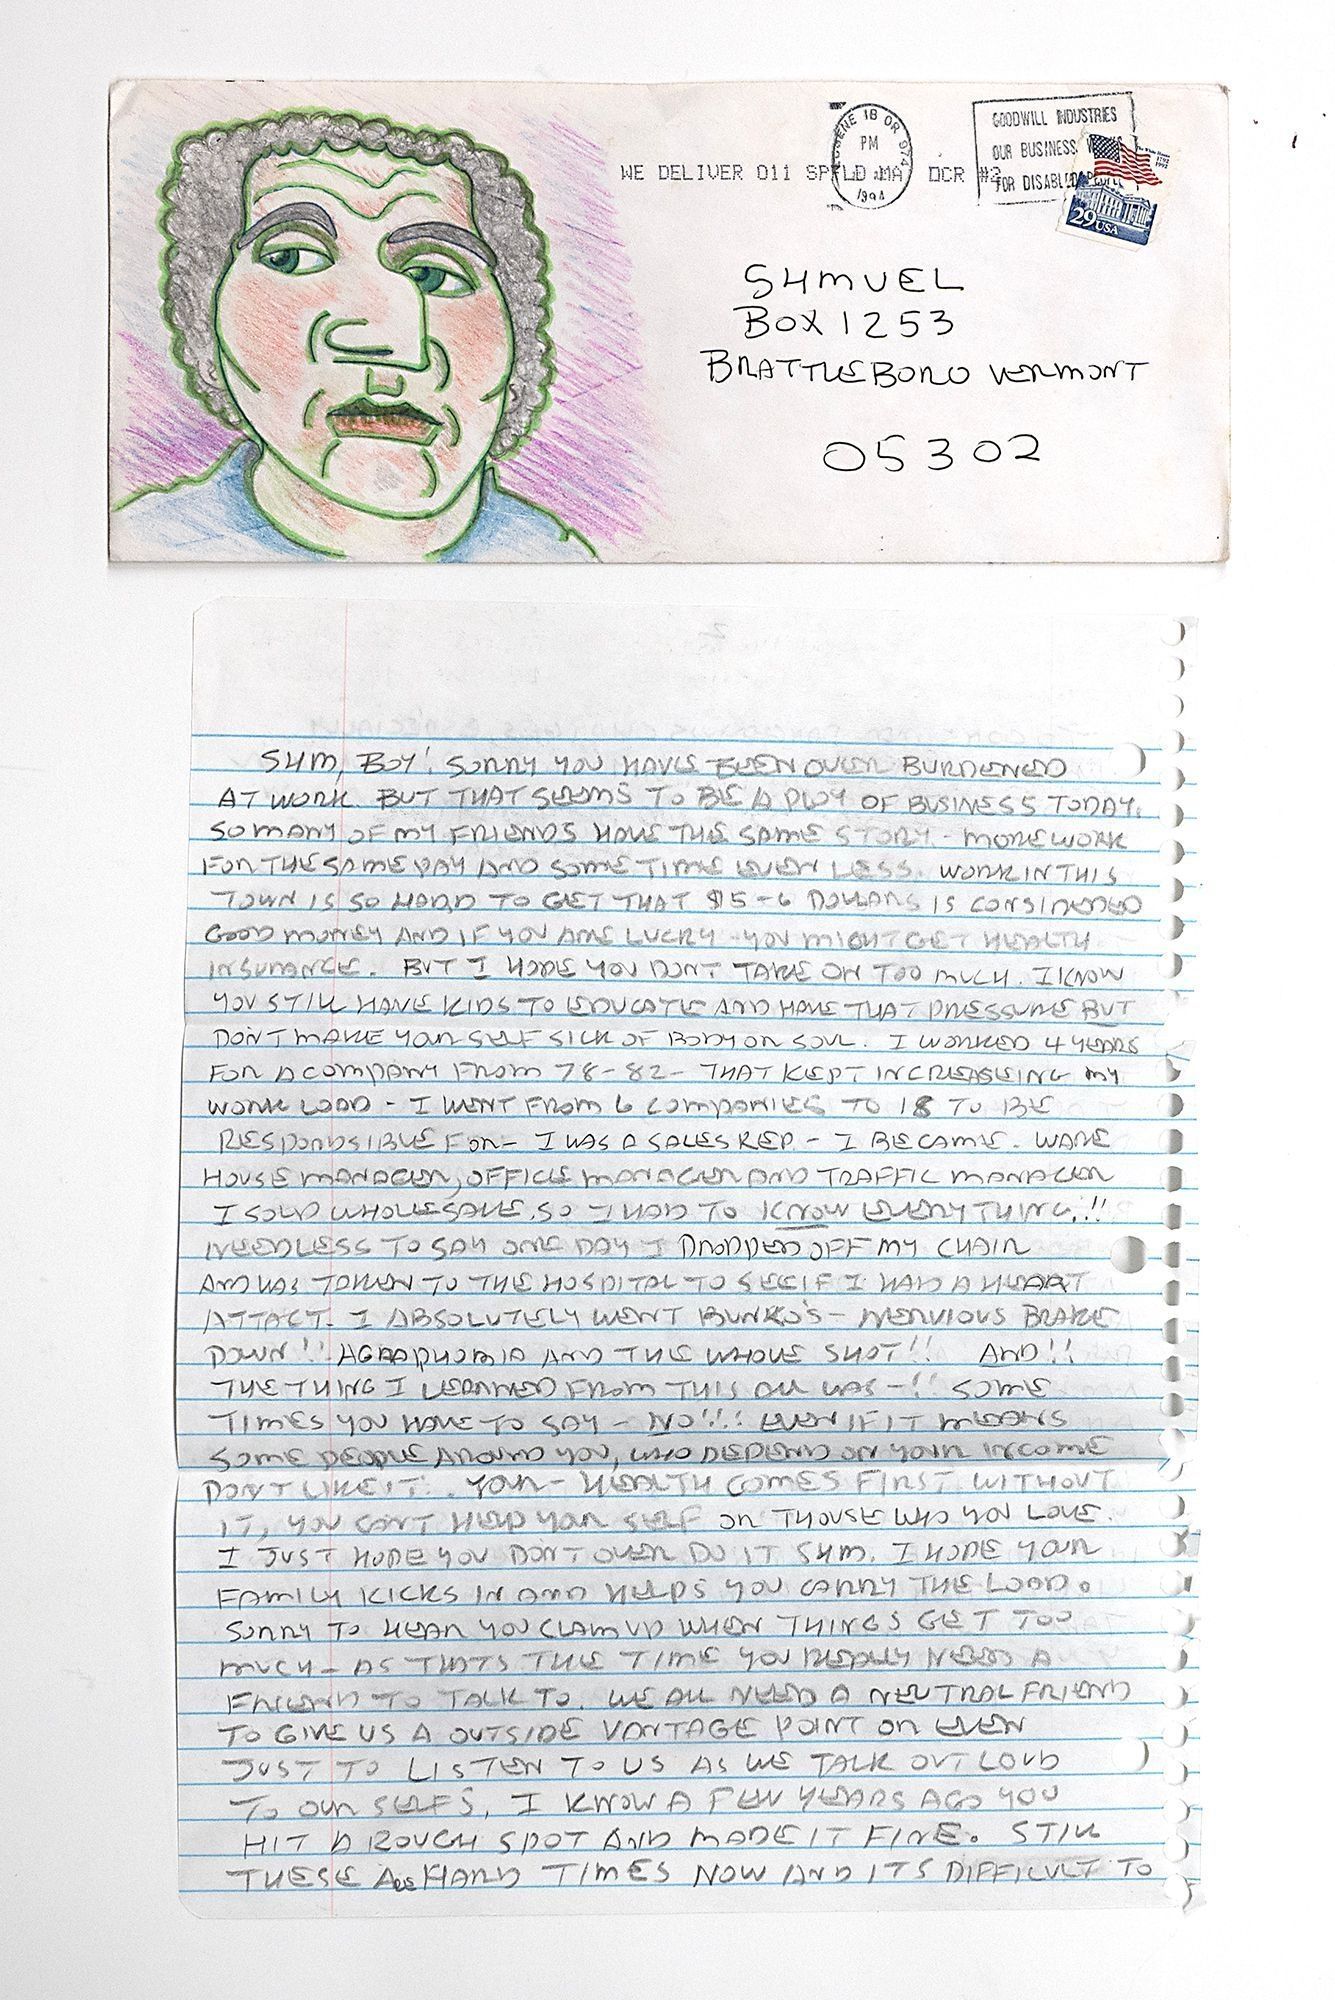 EUGENE 1B OR 974
PM
1994
WE DELIVER 011 SPFLD MA DCR #3
GOODWILL INDUSTRIES
OUR BUSINESS
FOR DISABLED PEOPLE
The White House
1792
1992
29 USA
SHMUEL
BOX 1253
BRATTLEBORO VERMONT
05302
SHM, BOY! SORRY YOU HAVE BEEN OVER BURDENED
AT WORK. BUT THAT SEEMS TO BE A PLOY OF BUSINESS TODAY.
SO MANY OF MY FRIENDS HAVE THE SAME STORY - MORE WORK
FOR THE SAME PAY AND SOME TIME EVEN LESS. WORK IN THIS
TOWN IS SO HARD TO GET THAT $5-6 DOLLARS IS CONSIDERED
GOOD MONEY AND IF YOU ARE LUCKY - YOU MIGHT GET HEALTH
INSURANCE. BUT I HOPE YOU DON'T TAKE ON TOO MUCH. I KNOW
YOU STILL HAVE KIDS TO EDUCATE AND HAVE THAT PRESSURE BUT
DON'T MAKE YOUR SELF SICK OF BODY OR SOUL. I WORKED 4 YEARS
FOR A COMPANY FROM 78-82 - THAT KEPT INCREASEING MY
WORK LOAD - I WENT FROM 6 COMPANIES TO 18 TO BE
RESPONSIBLE FOR - I WAS A SALES REP. - I BECAME. WARE
HOUSE MANAGER, OFFICE MANAGER AND TRAFFIC MANAGER
I SOLD WHOLESALE, SO I HAD TO KNOW EVERYTHING.!!
NEEDLESS TO SAY ONE DAY I DROPPED OFF MY CHAIR
AND WAS TAKEN TO THE HOSPITAL TO SEE IF I HAD A HEART
ATTACT. I ABSOLUTELY WENT BUNKO'S - NERVIOUS BRAKE
DOWN!! AGRAPHOBIA AND THE WHOLE SHOT!! AND!!
THE THING I LEARNED FROM THIS ALL WAS -!! SOME
TIMES YOU HAVE TO SAY - NO!!! EVEN IF IT MEANS
SOME PEOPLE AROUND YOU, WHO DEPEND ON YOUR INCOME
DON'T LIKE IT!. YOUR - HEALTH COMES FIRST WITHOUT
IT, YOU CAN'T HELP YOUR SELF OR THOUSE WHO YOU LOVE.
I JUST HOPE YOU DON'T OVER DO IT SHM. I HOPE YOUR
FAMILY KICKS IN AND HELPS YOU CARRY THE LOAD.
SORRY TO HEAR YOU CLAM UP WHEN THINGS GET TOO
MUCH - AS THATS THE TIME YOU REALLY NEED A
FRIEND TO TALK TO. WE ALL NEED A NEUTRAL FRIEND
TO GIVE US A OUTSIDE VANTAGE POINT OR EVEN
JUST TO LISTEN TO US AS WE TALK OUT LOUD
TO OUR SELFS, I KNOW A FEW YEARS AGO YOU
HIT A ROUGH SPOT AND MADE IT FINE. STILL
THESE ARE HARD TIMES NOW AND ITS DIFFICULT TO